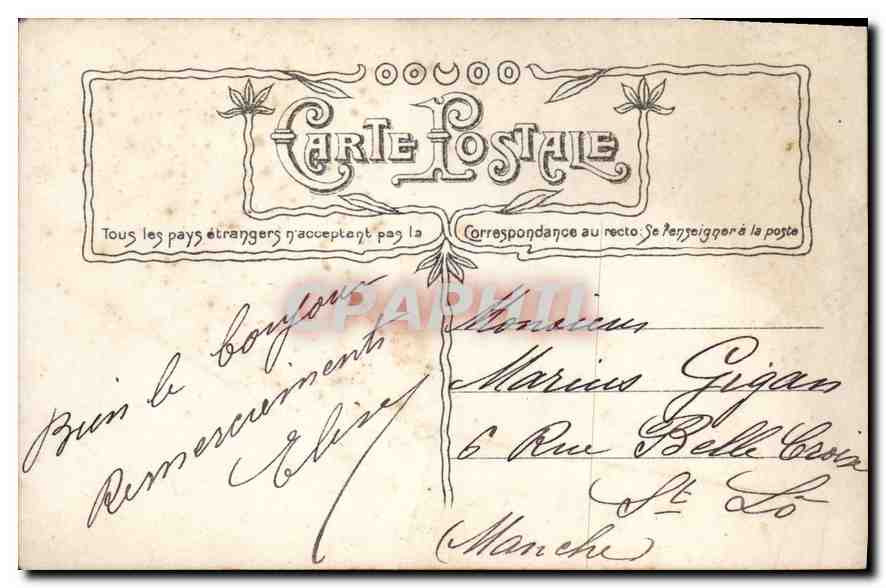 CARTE POSTALE
Tous les pays étrangers n'acceptent pas la Correspondance au recto: Se renseigner à la poste
CPAPHIL
Bien le bonjour
Remerciements
Elise
Monsieur
Marius Gigan
6 Rue Belle Croix
St Lô
(Manche)